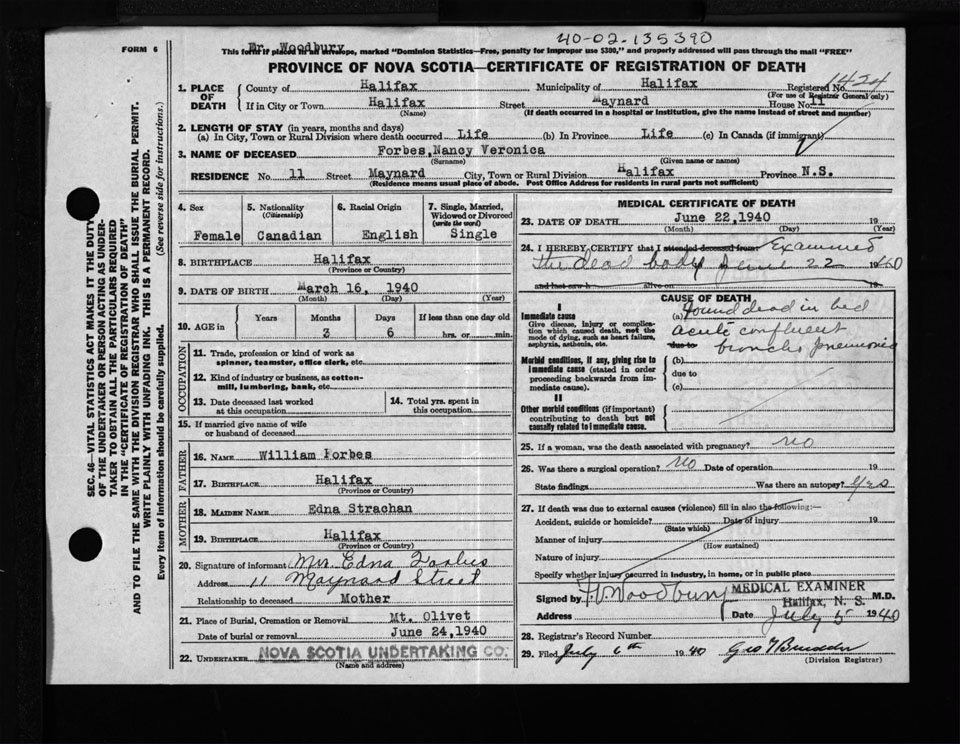 40-02-135390
Mr. Woodbury
FORM 6
This form if placed in an envelope, marked "Dominion Statistics—Free, penalty for improper use $300," and properly addressed will pass through the mail "FREE"
PROVINCE OF NOVA SCOTIA—CERTIFICATE OF REGISTRATION OF DEATH
1. PLACE OF DEATH
County of Halifax Municipality of Halifax Registered No. 1424
(For use of Registrar General only)
If in City or Town Halifax Street Maynard House No. 11
(Name) (If death occurred in a hospital or institution, give the name instead of street and number)
2. LENGTH OF STAY (in years, months and days)
(a) In City, Town or Rural Division where death occurred Life (b) In Province Life (c) In Canada (if immigrant)
3. NAME OF DECEASED Forbes, Nancy Veronica
(Surname) (Given name or names)
RESIDENCE No. 11 Street Maynard City, Town or Rural Division Halifax Province N.S.
(Residence means usual place of abode. Post Office Address for residents in rural parts not sufficient)
4. Sex
Female
5. Nationality
(Citizenship)
Canadian
6. Racial Origin
English
7. Single, Married, Widowed or Divorced
(write the word)
Single
8. BIRTHPLACE Halifax
(Province or Country)
9. DATE OF BIRTH March 16, 1940
(Month) (Day) (Year)
10. AGE in
Years Months Days If less than one day old
3 6 hrs. or min.
OCCUPATION
11. Trade, profession or kind of work as
spinner, teamster, office clerk, etc.
12. Kind of industry or business, as cotton-
mill, lumbering, bank, etc.
13. Date deceased last worked
at this occupation
14. Total yrs. spent in
this occupation
15. If married give name of wife
or husband of deceased
FATHER
16. NAME William Forbes
17. BIRTHPLACE Halifax
(Province or Country)
MOTHER
18. MAIDEN NAME Edna Strachan
19. BIRTHPLACE Halifax
(Province or Country)
20. Signature of informant Mrs. Edna Forbes
Address 11 Maynard Street
Relationship to deceased Mother
21. Place of Burial, Cremation or Removal Mt. Olivet
Date of burial or removal June 24, 1940
22. UNDERTAKER NOVA SCOTIA UNDERTAKING CO.
(Name and address)
MEDICAL CERTIFICATE OF DEATH
23. DATE OF DEATH June 22, 1940 19
(Month) (Day) (Year)
24. I HEREBY CERTIFY that I attended deceased from: Examined
the dead body June 22 1940
and last saw h alive on 19
CAUSE OF DEATH
I
Immediate cause
Give disease, injury or complica-
tion which caused death, not the
mode of dying, such as heart failure,
asphyxia, asthenia, etc.
(a) found dead in bed
acute confluent
due to broncho pneumonia
Morbid conditions, if any, giving rise to
immediate cause (stated in order
proceeding backwards from im-
mediate cause).
(b)
due to
(c)
II
Other morbid conditions (if important)
contributing to death but not
causally related to immediate cause.
25. If a woman, was the death associated with pregnancy? no
26. Was there a surgical operation? no Date of operation 19
State findings Was there an autopsy? yes
27. If death was due to external causes (violence) fill in also the following:—
Accident, suicide or homicide? Date of injury 19
(State which)
Manner of injury
(How sustained)
Nature of injury
Specify whether injury occurred in industry, in home, or in public place
MEDICAL EXAMINER
Signed by Woodbury M.D.
Halifax, N. S.
Address Date July 5 1940
28. Registrar's Record Number
29. Filed July 6th 1940 Geo
(Division Registrar)
SEC. 46—VITAL STATISTICS ACT MAKES IT THE DUTY
OF THE UNDERTAKER OR PERSON ACTING AS UNDER-
TAKER TO OBTAIN ALL THE PARTICULARS REQUIRED
IN THE "CERTIFICATE OF REGISTRATION OF DEATH"
AND TO FILE THE SAME WITH THE DIVISION REGISTRAR WHO SHALL ISSUE THE BURIAL PERMIT.
WRITE PLAINLY WITH UNFADING INK. THIS IS A PERMANENT RECORD.
Every item of information should be carefully supplied. (See reverse side for instructions.)